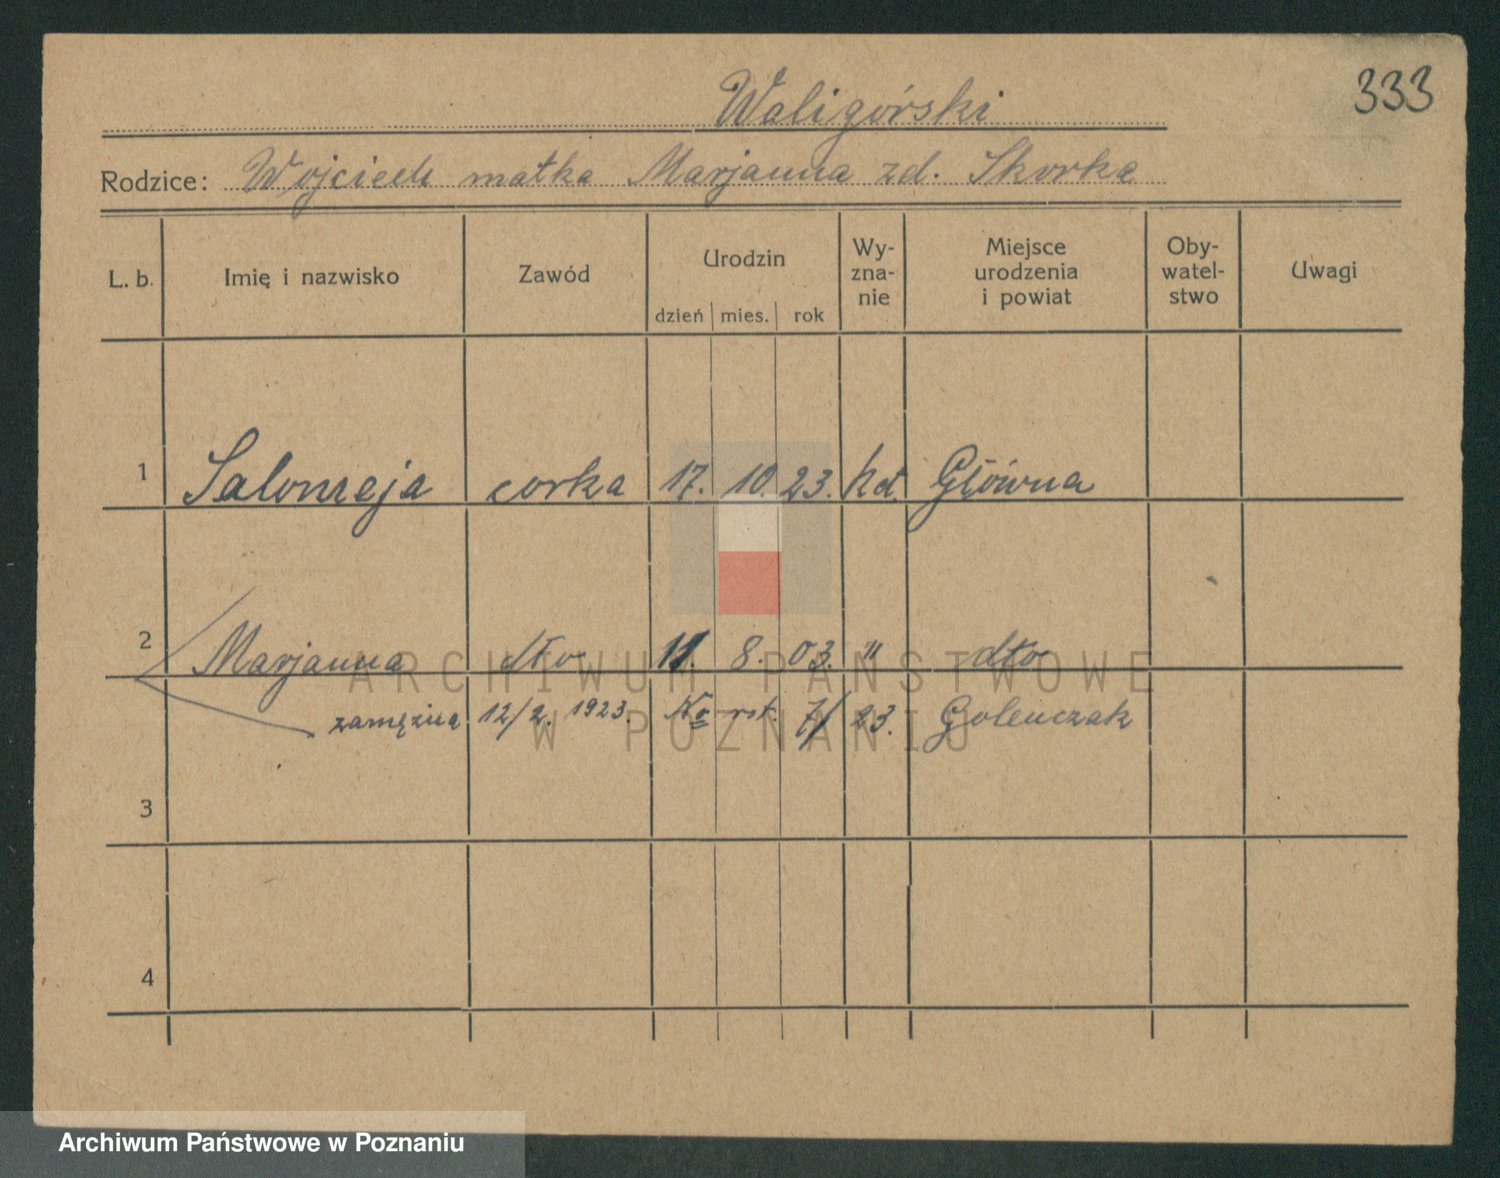 333
Waligórski
Rodzice: Wojciech matka Marjanna zd. Skorka
L. b. Imię i nazwisko Zawód Urodzin dzień mies. rok Wy-zna-nie Miejsce urodzenia i powiat Oby-watel-stwo Uwagi
1 Salomeja corka 17. 10. 23. kat. Główna
2 Marjanna dto 11. 8. 03. " dto
zamężna 12/2. 1923. 7/23. Golenczak
3
4
ARCHIWUM PAŃSTWOWE
W POZNANIU
Archiwum Państwowe w Poznaniu